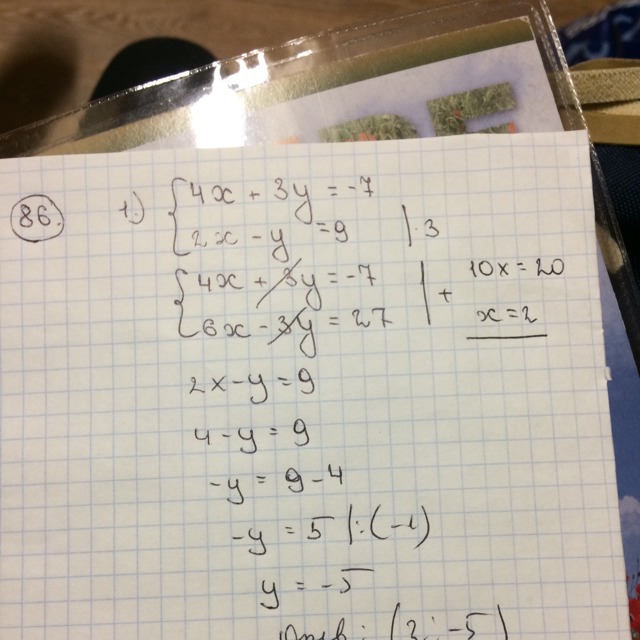 86 1.) 4x + 3y = -7
2x - y = 9 | · 3
4x + 3y = -7 | + 10x = 20
6x - 3y = 27 x = 2
2x - y = 9
4 - y = 9
-y = 9 - 4
-y = 5 | : (-1)
y = -5
Ответ: (2; -5)